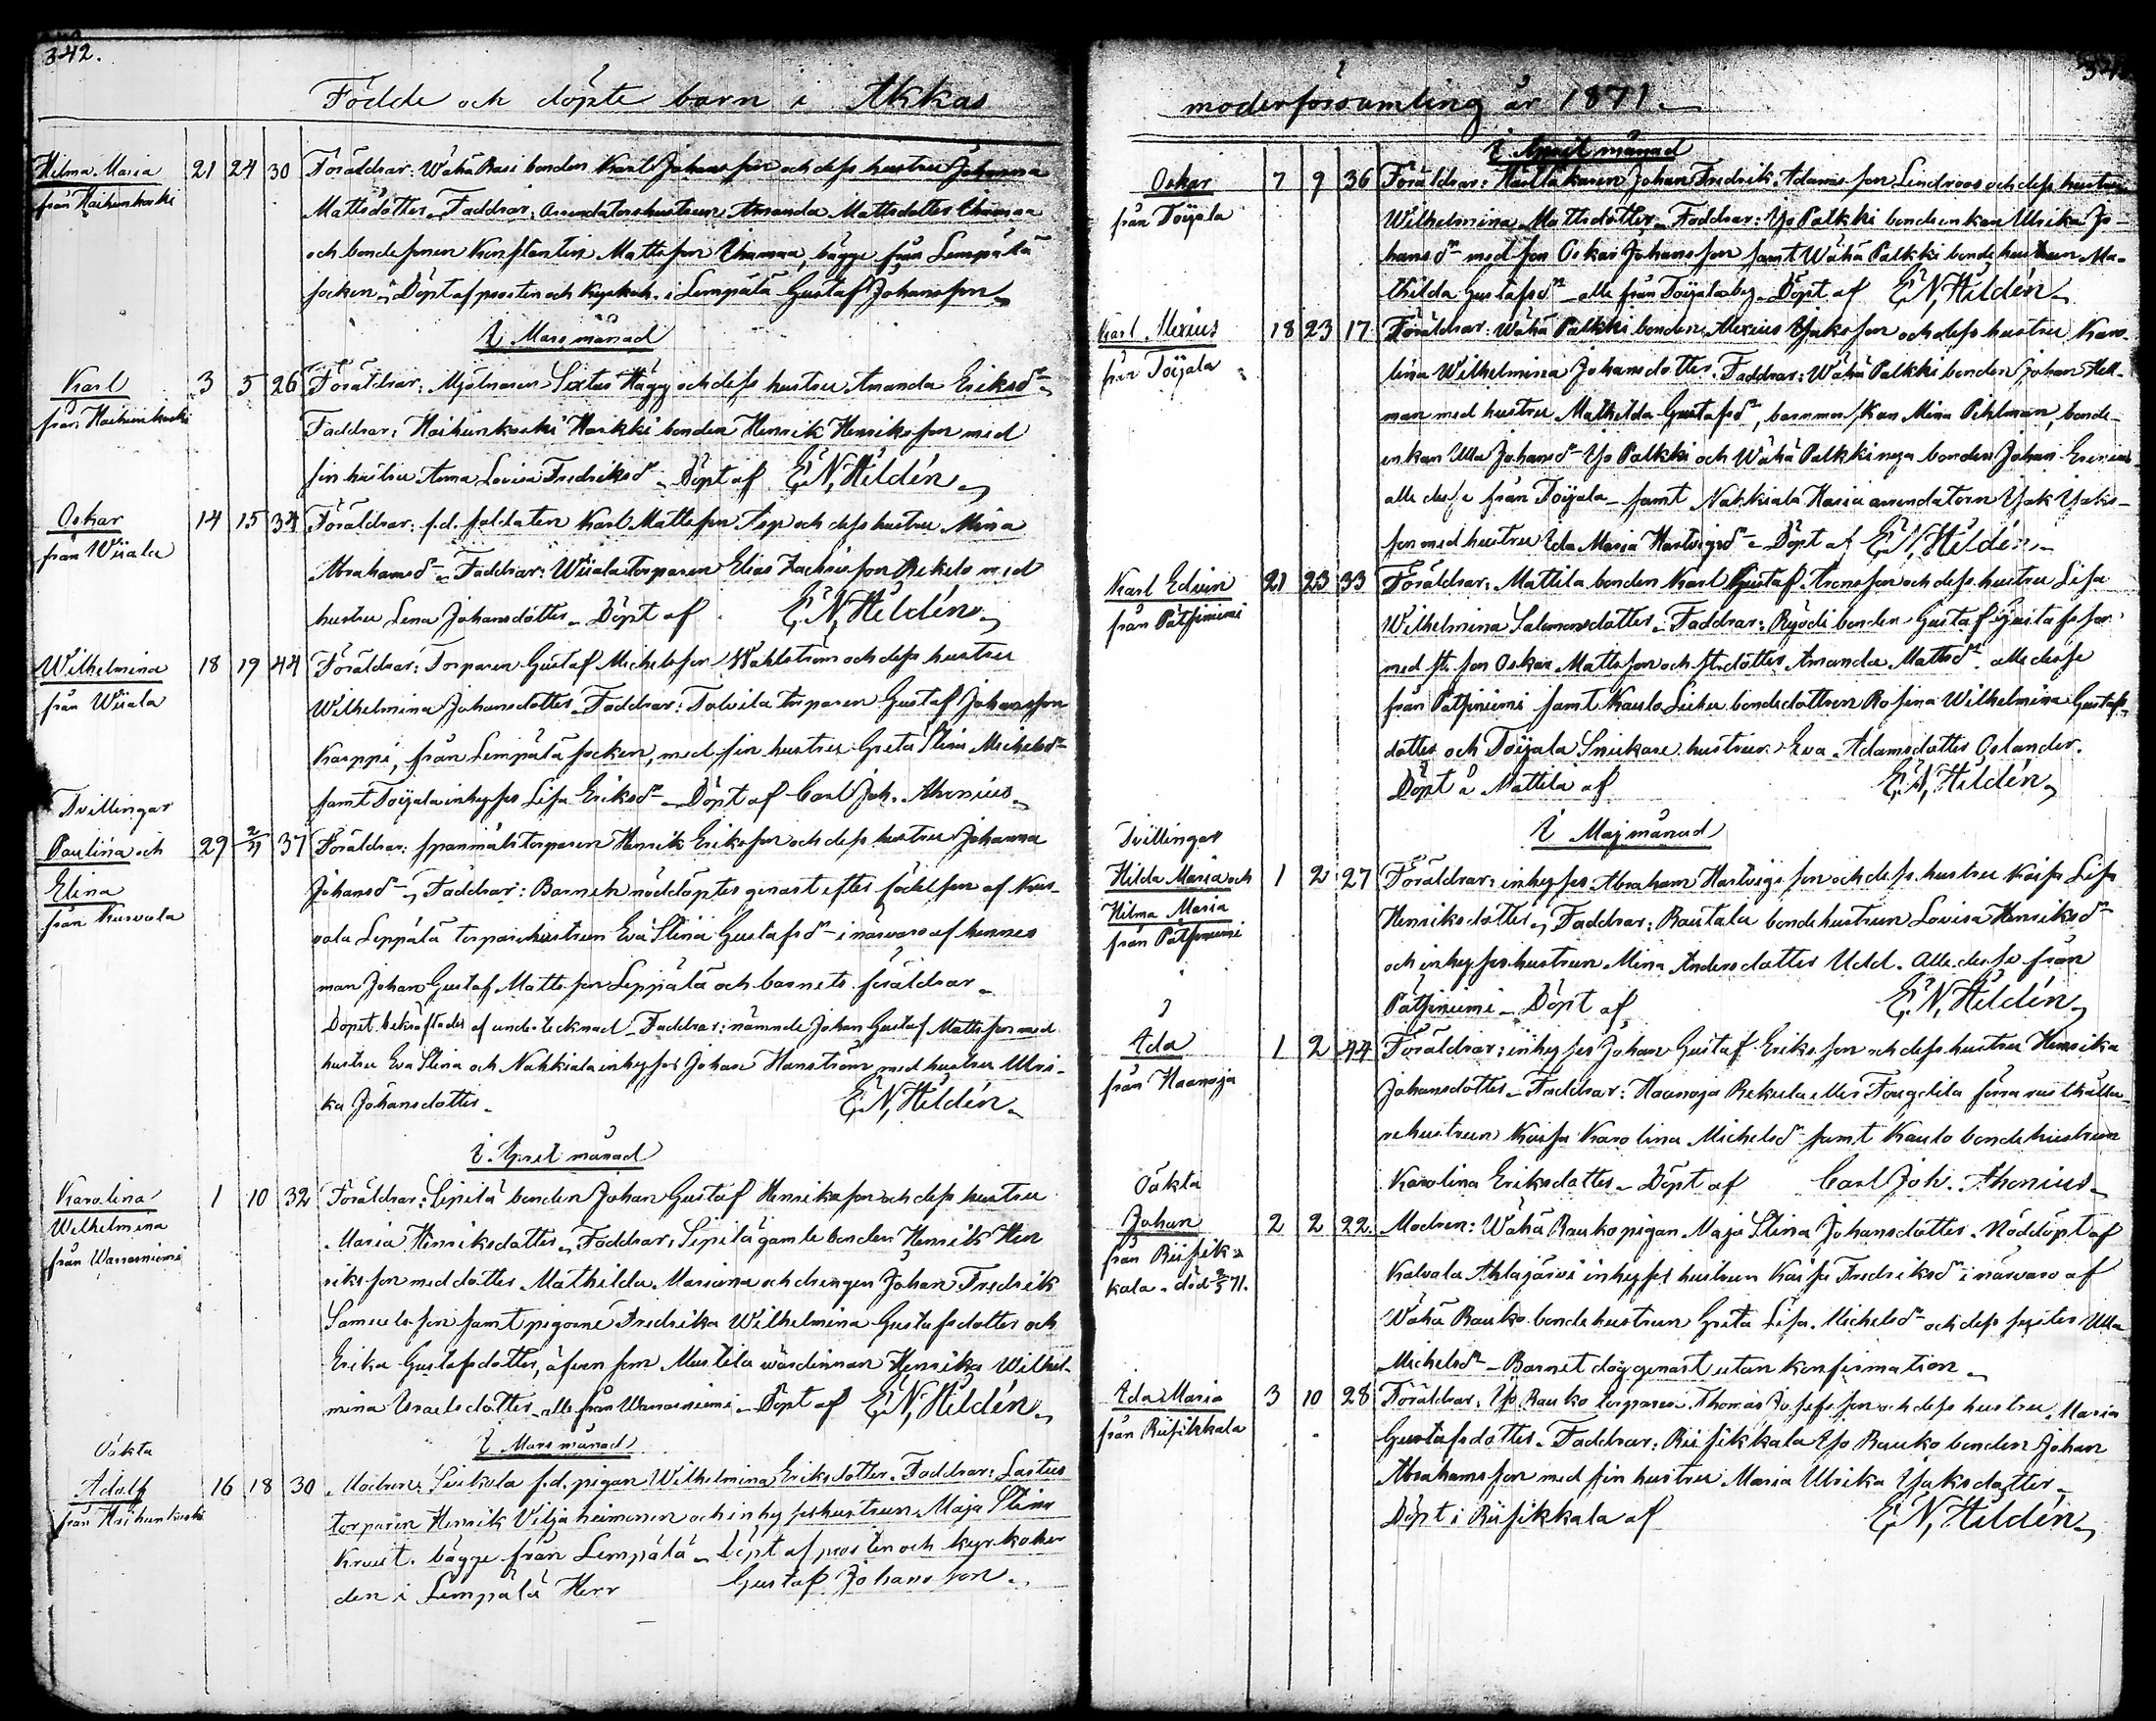 342.
Födde och döpte barn i Akkas
Hilma Maria 21 24 30 Föräldrar: Wähä Rasi bonden Karl Johansson och dess hustru Johanna
från Haihunkoski Mattsdotter. Faddrar: Arrendatorshustrun Amanda Mattsdotter
och bondesonen Konstantin Mattsson, bägge från Lempälä
socken. Döpt af prosten och Kyrkoh. i Lempälä Gustaf Johansson
I Mars månad
Karl 3 5 26 Föräldrar: Mjölnaren Sixtus Hägg och dess hustru Amanda Eriksdr
från Haihunkoski Faddrar: Haihunkoski Harkki bonden Henrik Henriksson med
sin hustru Anna Lovisa Fredriksdr. Döpt af E. N. Hildén
Oskar 14 15 34 Föräldrar: f.d. soldaten Karl Mattsson Asp och dess hustru Mina
från Wiiala Abrahamsdr. Faddrar: Wiiala torparen Elias Zachrisson Rekelä med
hustru Lena Johansdotter. Döpt af E. N. Hildén
Wilhelmina 18 19 44 Föräldrar: Torparen Gustaf Michelsson Wahlström och dess hustru
från Wiiala Wilhelmina Johansdotter. Faddrar: Tolvila torparen Gustaf Johansson
Karppi, från Lempälä socken, med sin hustru Greta Stina Michelsdr
samt Toijala inhyses Lisa Eriksdr. Döpt af Carl Joh. Ahonius
Tvillingar
Paulina och 29 2/31 37 Föräldrar: spanmåls torparen Henrik Eriksson och dess hustru Johanna
Elina Johansdr. Faddrar: Barnen nöddöptes genast efter födelsen af Kur-
från Kurvola vola Leppälä torparehustrun Eva Stina Gustafsdr i närvaro af hennes
man Johan Gustaf Mattsson Leppälä och barnets föräldrar.
Dopet bekräftades af undertecknad. Faddrar: nämnde Johan Gustaf Mattsson med
hustru Eva Stina och Nahkiala inhyses Johan Hanström med hustru Ulri-
ka Johansdotter. E. N. Hildén
I April månad
Karolina 1 10 32 Föräldrar: Sipilä bonden Johan Gustaf Henriksson och dess hustru
Wilhelmina Maria Henriksdotter. Faddrar: Sipilä gamle bonden Henrik Hen
från Warrasniemi riksson med dotter Mathilda Mariana och drengen Johan Fredrik
Samuelsson samt pigorne Fredrika Wilhelmina Gustafsdotter och
Erika Gustafsdotter, äfven som Mustila wärdinnan Henrika Wilhel-
mina Israelsdotter, alle från Warrasniemi. Döpt af E. N. Hildén
I Mars månad
Oäkta
Adolf 16 18 30 Modren: Svikola f.d. pigan Wilhelmina Eriksdotter. Faddrar: Lastus
från Haihunkoski torparen Henrik Viljaheimonen och inhyseshustrun Maja Stina
Kruut. bägge från Lempälä. Döpt af prosten och kyrkoher
den i Lempälä Herr Gustaf Johansson
moderförsamling år 1871.
I April månad
Oskar 7 9 36 Föräldrar: Johan Fredrik Adamsson Lindroos och dess hustru
från Toijala Wilhelmina Mattsdotter. Faddrar: Yso Palkki bondeenkan Ulrika Jo-
hansdr med son Oskar Johansson samt Wähä Palkki bondehustrun Ma-
thilda Gustafsdr alle från Toijala by. Döpt af E. N. Hildén
Karl Alexius 18 23 17 Föräldrar: Wähä Palkki bonden Alexius Ysaksson och dess hustru Karo-
från Toijala lina Wilhelmina Johansdotter. Faddrar: Wähä Palkki bonden Johan Hell-
man med hustru Mathilda Gustafsdr, barnmorskan Mina Pihlman, bonde-
enkan Ulla Johansdr Yso Palkki och Wähä Palkki nya bonden Johan
alle desse från Toijala samt Nahkiala Haria arrendatorn Ysak Ysaks-
son med hustru Ida Maria Hartvigsdr. Döpt af E. N. Hildén
Karl Edvin 21 23 33 Föräldrar: Mattila bonden Karl Gustaf Aronsson och dess hustru Lisa
från Pätsiniemi Wilhelmina Salomonsdotter. Faddrar: Ryödi bonden Gustaf Gustafsson
med st. son Oskar Mattsson och st. dotter Amanda Mattsdr alle desse
från Pätsiniemi samt Kaulo bondedottren Rosina Wilhelmina Gustafs-
dotter och Toijala Snickare hustrun Eva Adamsdotter Oslander.
Döpt å Mattila af E. N. Hildén
I Maj månad
Tvillingar
Hilda Maria och 1 2 27 Föräldrar: inhyses Abraham Hartvigsson och dess hustru Kaisa Lisa
Hilma Maria Henriksdotter. Faddrar: Rautala bondehustrun Lovisa Henriksdr
från Pätsiniemi och inhyseshustrun Mina Andersdotter Udd. Alle desse från
Pätsiniemi. Döpt af E. N. Hildén
Ida 1 2 44 Föräldrar: inhyses Johan Gustaf Eriksson och dess hustru Henrika
från Haanoja Johansdotter. Faddrar: Haanoja Rekula eller Fougdila förra rusthålla-
rehustrun Kaisa Karolina Michelsdr samt Kaulo bondehustrun
Karolina Eriksdotter. Döpt af Carl Joh. Ahonius
Oäkta
Johan 2 2 22. Modren: Wähä Rauko pigan Maja Stina Johansdotter. Nöddöpt af
från Riisik- Kalvola Ahlajärvi inhyses hustrun Kaisa Fredriksdr i närvaro af
kala. död 2/5 71. Wähä Rauko bondehustrun Greta Lisa Michelsdr och dess syster Ulla
Michelsdr. Barnet dog genast utan konfirmation
Ida Maria 3 10 28 Föräldrar: Yso Rauko torparen Thomas Josefsson och dess hustru Maria
från Riisikkala Gustafsdotter. Faddrar: Riisikkala Yso Rauko bonden Johan
Abrahamsson med sin hustru Maria Ulrika Ysaksdotter.
Döpt i Riisikkala af E. N. Hildén